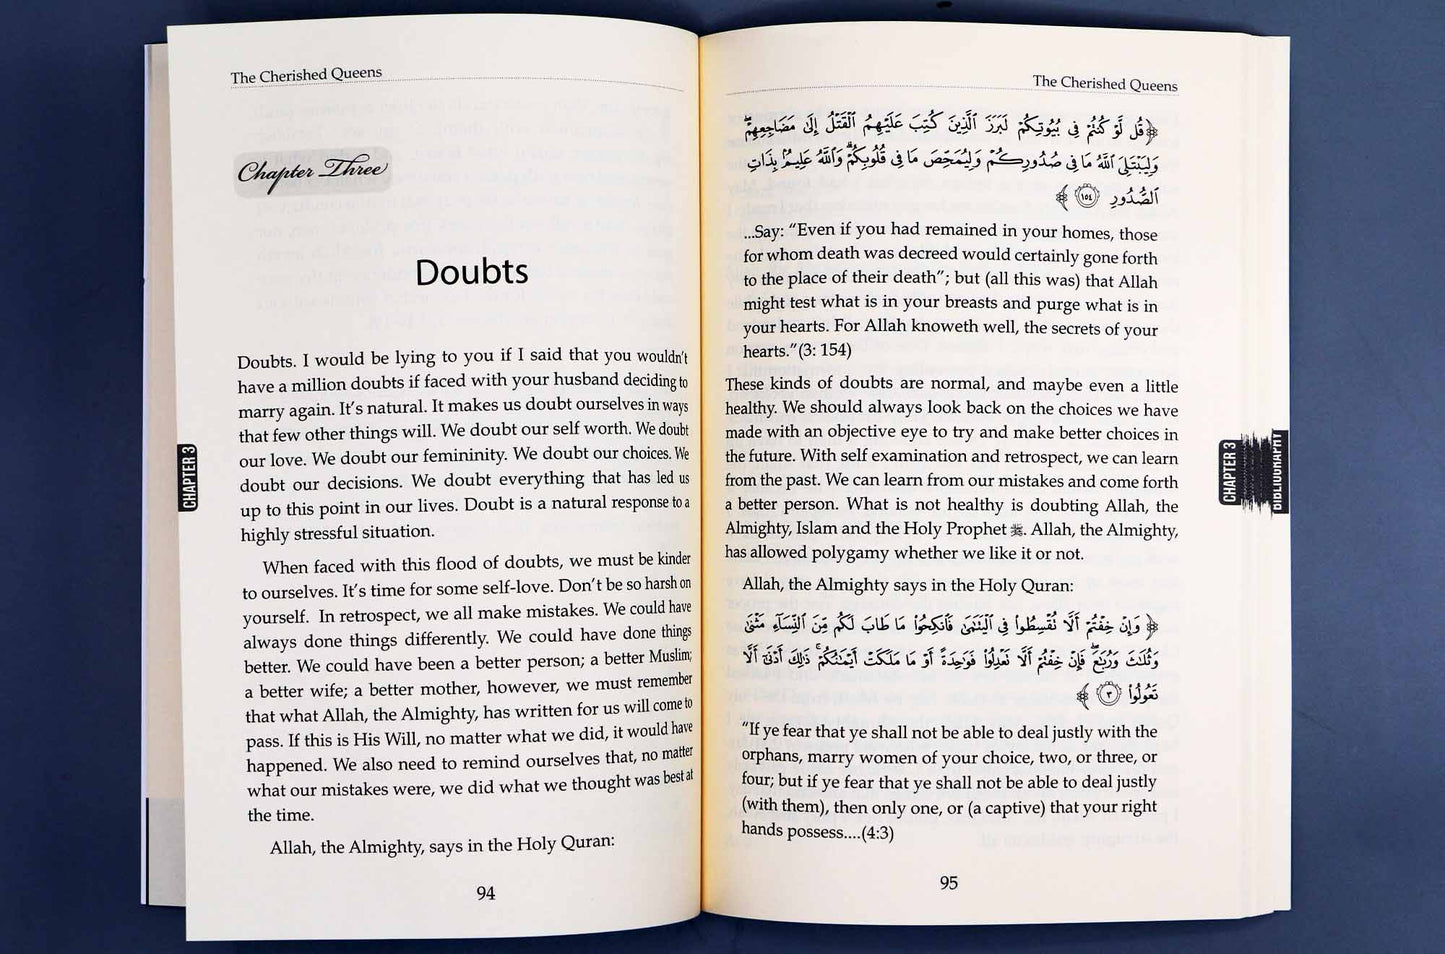 The Cherished Queens
Chapter Three
Doubts
Doubts. I would be lying to you if I said that you wouldn't
have a million doubts if faced with your husband deciding to
marry again. It's natural. It makes us doubt ourselves in ways
that few other things will. We doubt our self worth. We doubt
our love. We doubt our femininity. We doubt our choices. We
doubt our decisions. We doubt everything that has led us
up to this point in our lives. Doubt is a natural response to a
highly stressful situation.
When faced with this flood of doubts, we must be kinder
to ourselves. It's time for some self-love. Don't be so harsh on
yourself. In retrospect, we all make mistakes. We could have
always done things differently. We could have done things
better. We could have been a better person; a better Muslim;
a better wife; a better mother, however, we must remember
that what Allah, the Almighty, has written for us will come to
pass. If this is His Will, no matter what we did, it would have
happened. We also need to remind ourselves that, no matter
what our mistakes were, we did what we thought was best at
the time.
Allah, the Almighty, says in the Holy Quran:
94
CHAPTER 3
The Cherished Queens
﴿قُل لَّوْ كُنتُمْ فِى بُيُوتِكُمْ لَبَرَزَ ٱلَّذِينَ كُتِبَ عَلَيْهِمُ ٱلْقَتْلُ إِلَىٰ مَضَاجِعِهِمْ ۖ
وَلِيَبْتَلِىَ ٱللَّهُ مَا فِى صُدُورِكُمْ وَلِيُمَحِّصَ مَا فِى قُلُوبِكُمْ ۗ وَٱللَّهُ عَلِيمٌۢ بِذَاتِ
ٱلصُّدُورِ ١٥٤ ﴾
...Say: “Even if you had remained in your homes, those
for whom death was decreed would certainly gone forth
to the place of their death”; but (all this was) that Allah
might test what is in your breasts and purge what is in
your hearts. For Allah knoweth well, the secrets of your
hearts.”(3: 154)
These kinds of doubts are normal, and maybe even a little
healthy. We should always look back on the choices we have
made with an objective eye to try and make better choices in
the future. With self examination and retrospect, we can learn
from the past. We can learn from our mistakes and come forth
a better person. What is not healthy is doubting Allah, the
Almighty, Islam and the Holy Prophet ﷺ. Allah, the Almighty,
has allowed polygamy whether we like it or not.
Allah, the Almighty says in the Holy Quran:
﴿ وَإِنْ خِفْتُمْ أَلَّا تُقْسِطُوا۟ فِى ٱلْيَتَـٰمَىٰ فَٱنكِحُوا۟ مَا طَابَ لَكُم مِّنَ ٱلنِّسَآءِ مَثْنَىٰ
وَثُلَـٰثَ وَرُبَـٰعَ ۖ فَإِنْ خِفْتُمْ أَلَّا تَعْدِلُوا۟ فَوَٰحِدَةً أَوْ مَا مَلَكَتْ أَيْمَـٰنُكُمْ ۚ ذَٰلِكَ أَدْنَىٰٓ أَلَّا
تَعُولُوا۟ ٣ ﴾
“If ye fear that ye shall not be able to deal justly with the
orphans, marry women of your choice, two, or three, or
four; but if ye fear that ye shall not be able to deal justly
(with them), then only one, or (a captive) that your right
hands possess....(4:3)
95
CHAPTER 3
BIBLIOGRAPHY